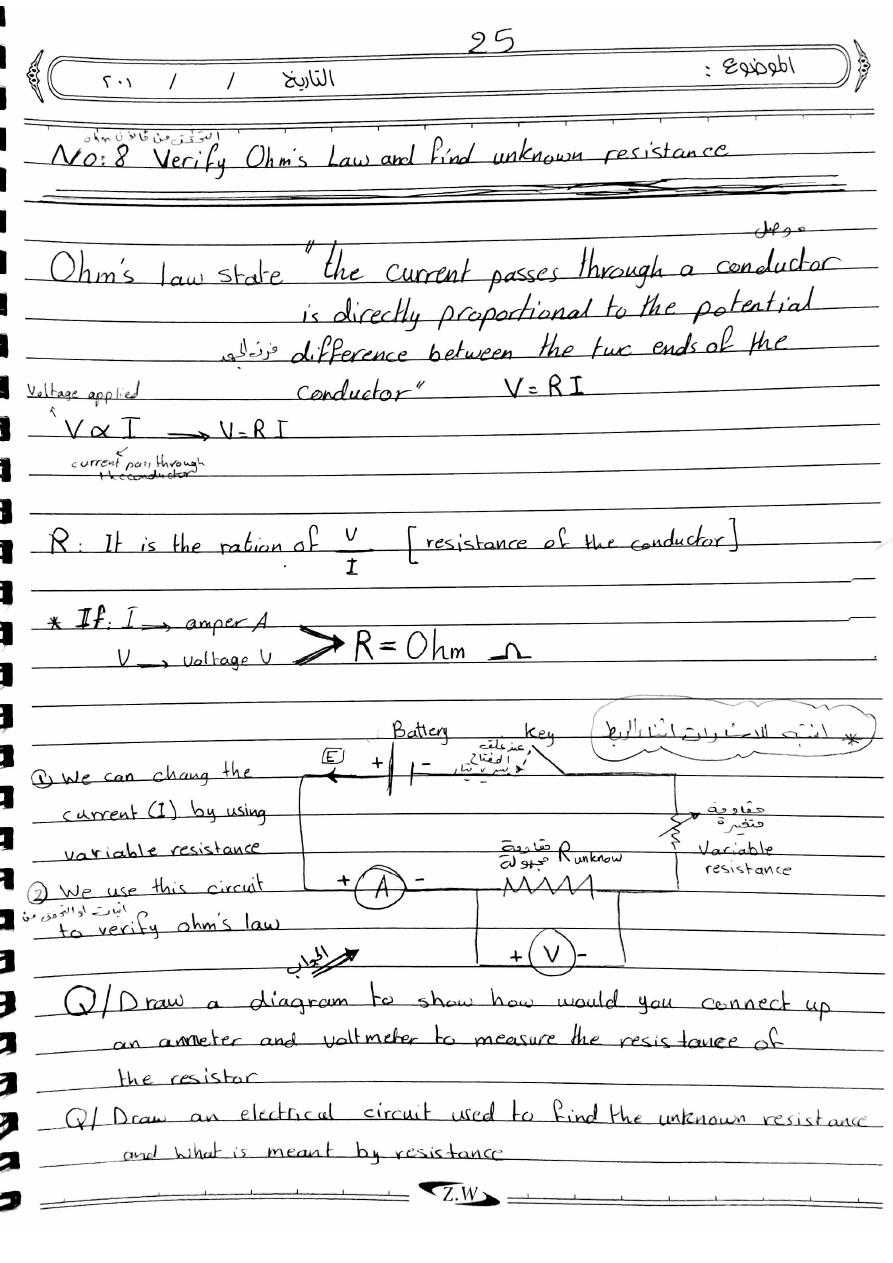 25
الموضوع :
التاريخ / / ٢٠١
التحقق من قانون ohm
No: 8 Verify Ohm's Law and find unknown resistance
موصل
Ohm's law state "the current passes through a conductor
is directly proportional to the potential
فرق الجهد difference between the two ends of the
conductor" V = R I
Voltage applied
V ∝ I → V = R I
current pass through
the conductor
R: It is the ration of V/I [resistance of the conductor]
* If: I → amper A
V → voltage V
R = Ohm Ω
* انتبه للاشارات اثناء الربط
Battery Key
E + -
عند غلق
المفتاح
يسري تيار
① We can chang the
current (I) by using
variable resistance
② We use this circuit
اثبات او التحقق من
to verify ohm's law
مقاومة
متغيرة
Variable
resistance
مقاومة
مجهولة R unknow
+ A -
+ V -
الجواب
Q/ Draw a diagram to show how would you connect up
an ammeter and voltmeter to measure the resistance of
the resistor
Q/ Draw an electrical circuit used to find the unknown resistance
and what is meant by resistance
Z.W